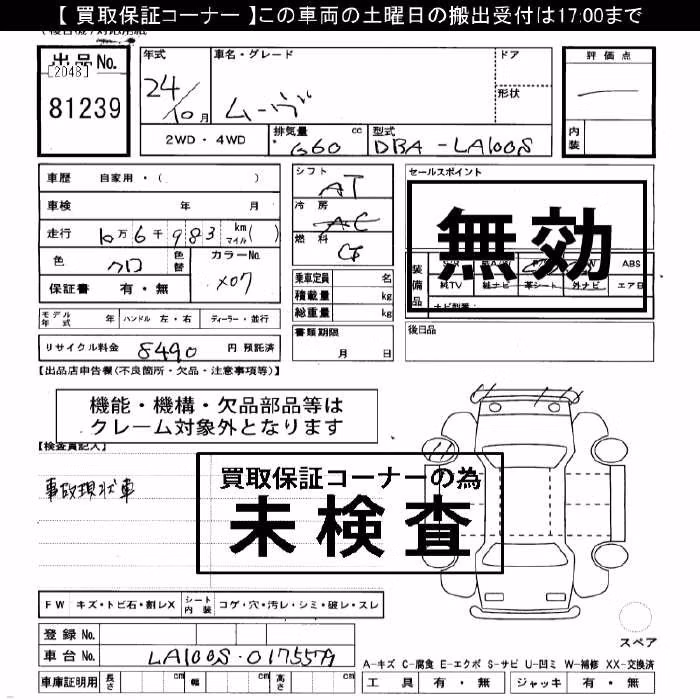 【 買取保証コーナー 】この車両の土曜日の搬出受付は17:00まで
出品No.
[2048]
81239
年式
24/10月
車名・グレード
ムーヴ
ドア
形状
評価点
内装
2WD・4WD
排気量 660 cc
型式 DBA-LA100S
車歴 自家用・( )
車検 年 月
走行 10万6千983 km マイル ( )
色 クロ 色替
カラーNo. X07
保証書 有・無
シフト AT
冷房 AC
燃料
乗車定員 名
積載量 kg
総重量 kg
セールスポイント
無効
装備品
ABS
純TV 純ナビ 革シート 外ナビ エアB
ナビ型番:
モデル年式 年 ハンドル 左・右 ディーラー・並行
書類期限 月 日
後日品
リサイクル料金 8490 円 預託済
【出品店申告欄(不良箇所・欠品・注意事項等)】
機能・機構・欠品部品等は
クレーム対象外となります
【検査員記入】
事故現状車
買取保証コーナーの為
未検査
FW キズ・トビ石・割レX シート内装 コゲ・穴・汚レ・シミ・破レ・スレ
スペア
登録No.
車台No. LA100S-0175579
A-キズ C-腐食 E-エクボ S-サビ U-凹ミ W-補修 XX-交換済
車庫証明用 長さ cm 幅 cm 高さ cm
工具 有・無 ジャッキ 有・無